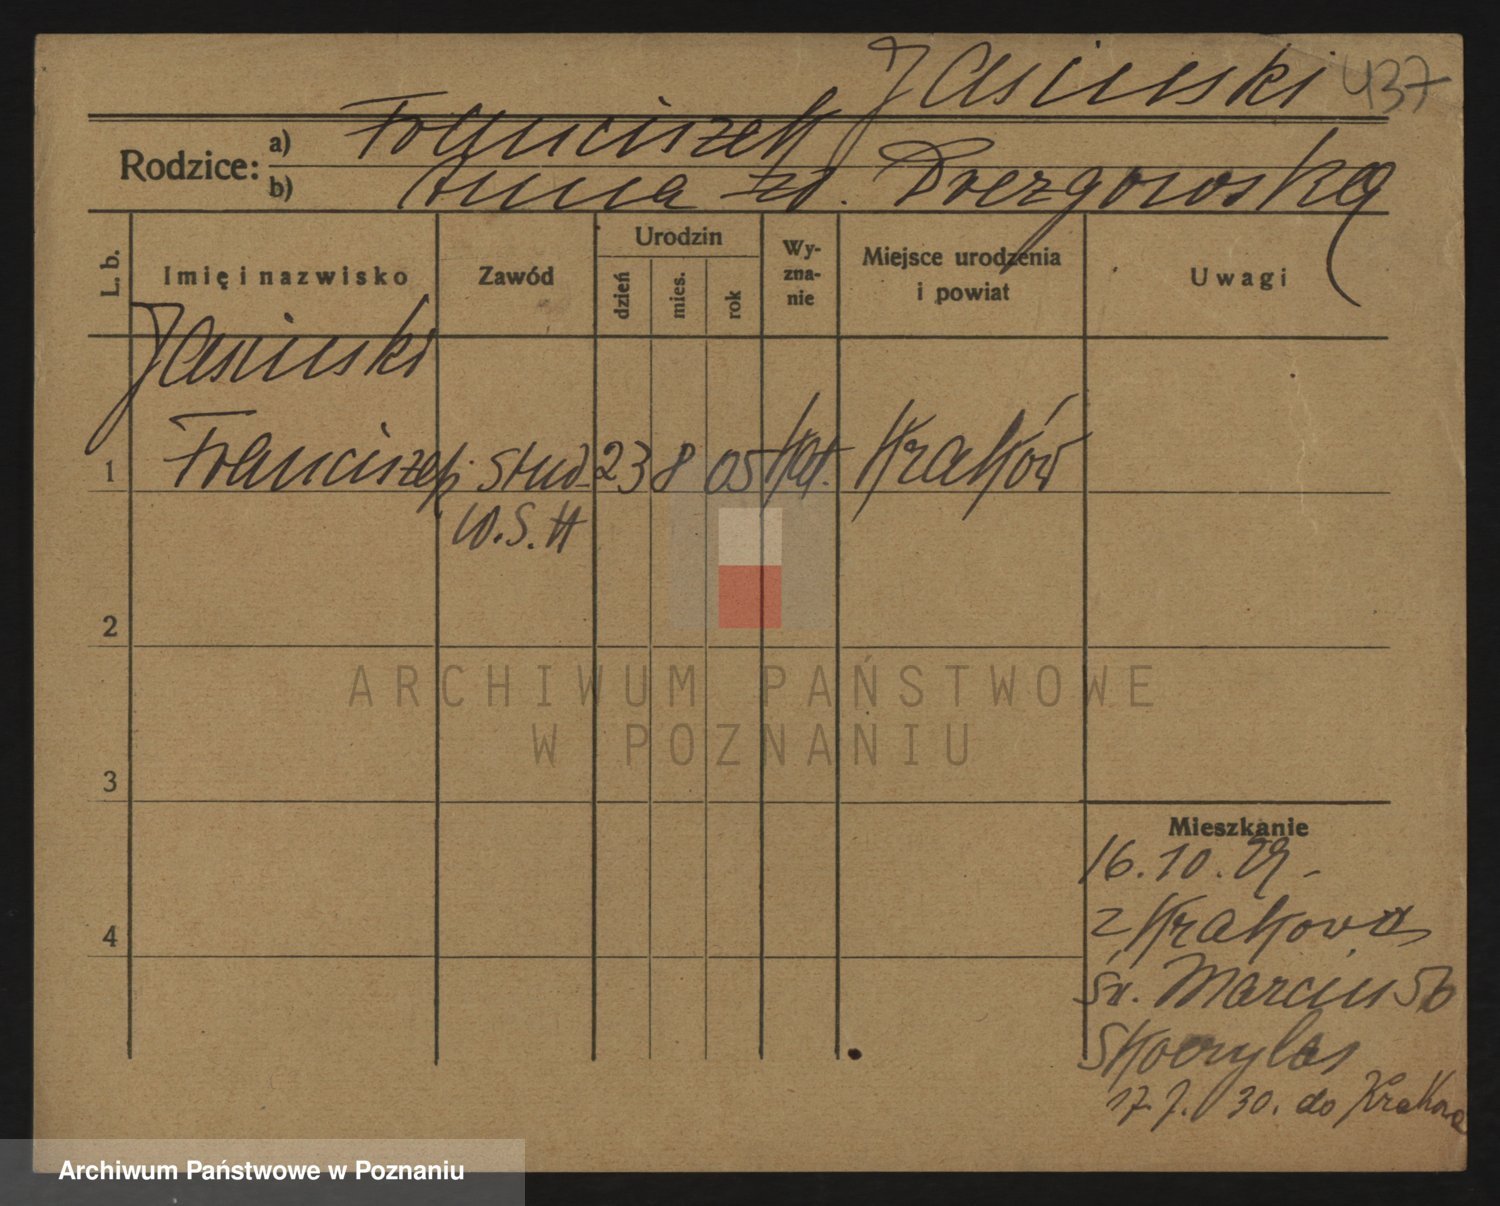 Jasinski 437
Rodzice:
a) Franciszek
b) Anna zd. Drezgowska
L. b.
Imię i nazwisko
Zawód
Urodzin
dzień
mies.
rok
Wy-
zna-
nie
Miejsce urodzenia
i powiat
Uwagi
Jasinski
1 Franciszek stud. 23 8 05 Kat. Kraków
W.S.H
2
3
4
ARCHIWUM PAŃSTWOWE
W POZNANIU
Mieszkanie
16.10.29 -
z Krakowa
Św. Marcin 56
17.7.30. do Krakowa
Archiwum Państwowe w Poznaniu